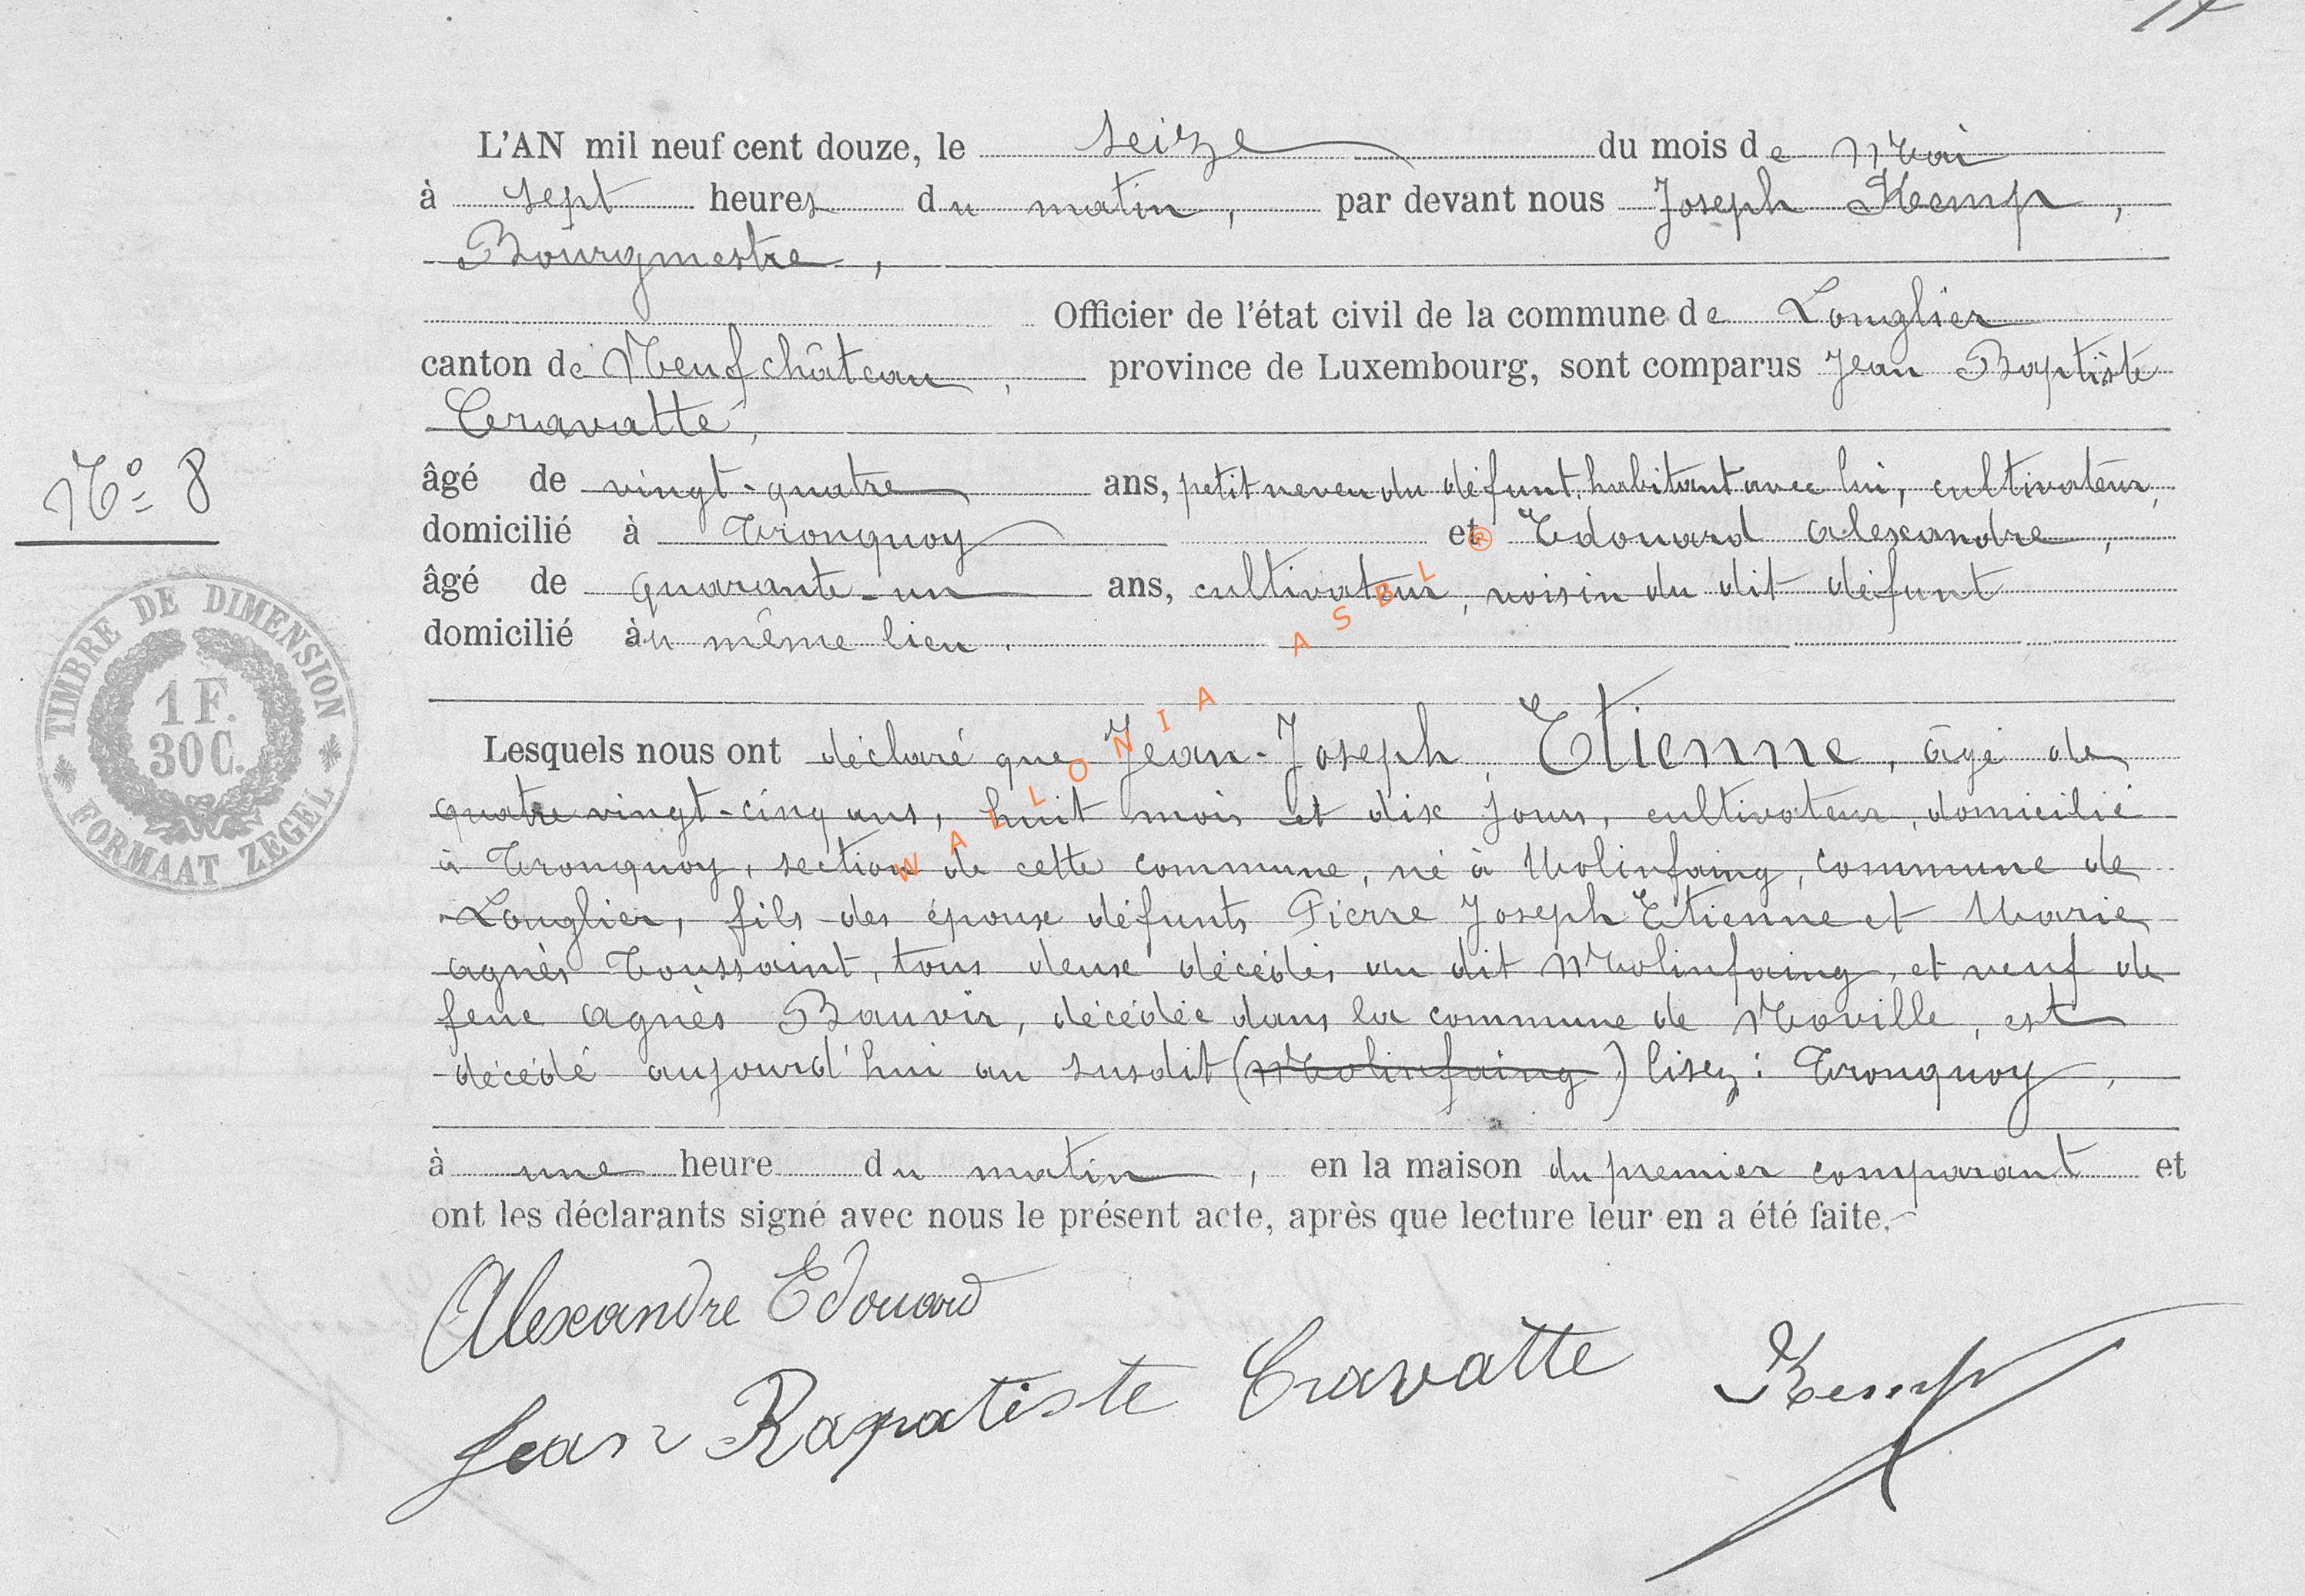 L'AN mil neuf cent douze, le seize du mois de Mai
à sept heures du matin, par devant nous Joseph Kemp,
Bourgmestre,
Officier de l'état civil de la commune de Longlier
canton de Neufchâteau, province de Luxembourg, sont comparus Jean Baptiste
Cravatte,
N° 8
âgé de vingt-quatre ans, petit neveu du défunt, habitant avec lui, cultivateur,
domicilié à Tronquoy et Edouard Alexandre,
âgé de quarante-un ans, cultivateur, voisin du dit défunt
domicilié àu même lieu.
TIMBRE DE DIMENSION
1 F.
30 C.
FORMAAT ZEGEL
WALLONIA ASBL ®
Lesquels nous ont déclaré que Jean-Joseph, Etienne, âgé de
quatre vingt-cinq ans, huit mois et dix jours, cultivateur, domicilié
à Tronquoy, section de cette commune, né à Molinfaing, commune de
Longlier, fils des époux défunts Pierre Joseph Etienne et Marie
Agnès Toussaint, tous deux décédés au dit Molinfaing, et veuf de
feue Agnès Bauvir, décédée dans la commune de Moville, est
décédé aujourd'hui au susdit (Molinfaing) lisez: Tronquoy,
à une heure du matin, en la maison du premier comparant et
ont les déclarants signé avec nous le présent acte, après que lecture leur en a été faite.
Alexandre Edouard
Jean Bapatiste Cravatte Kemp